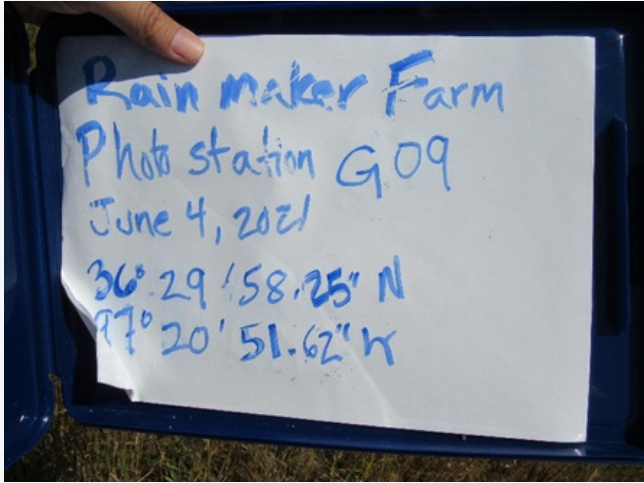 Rain maker Farm
Photo station G09
June 4, 2021
36° 29 ' 58.25" N
77° 20' 51.62" W